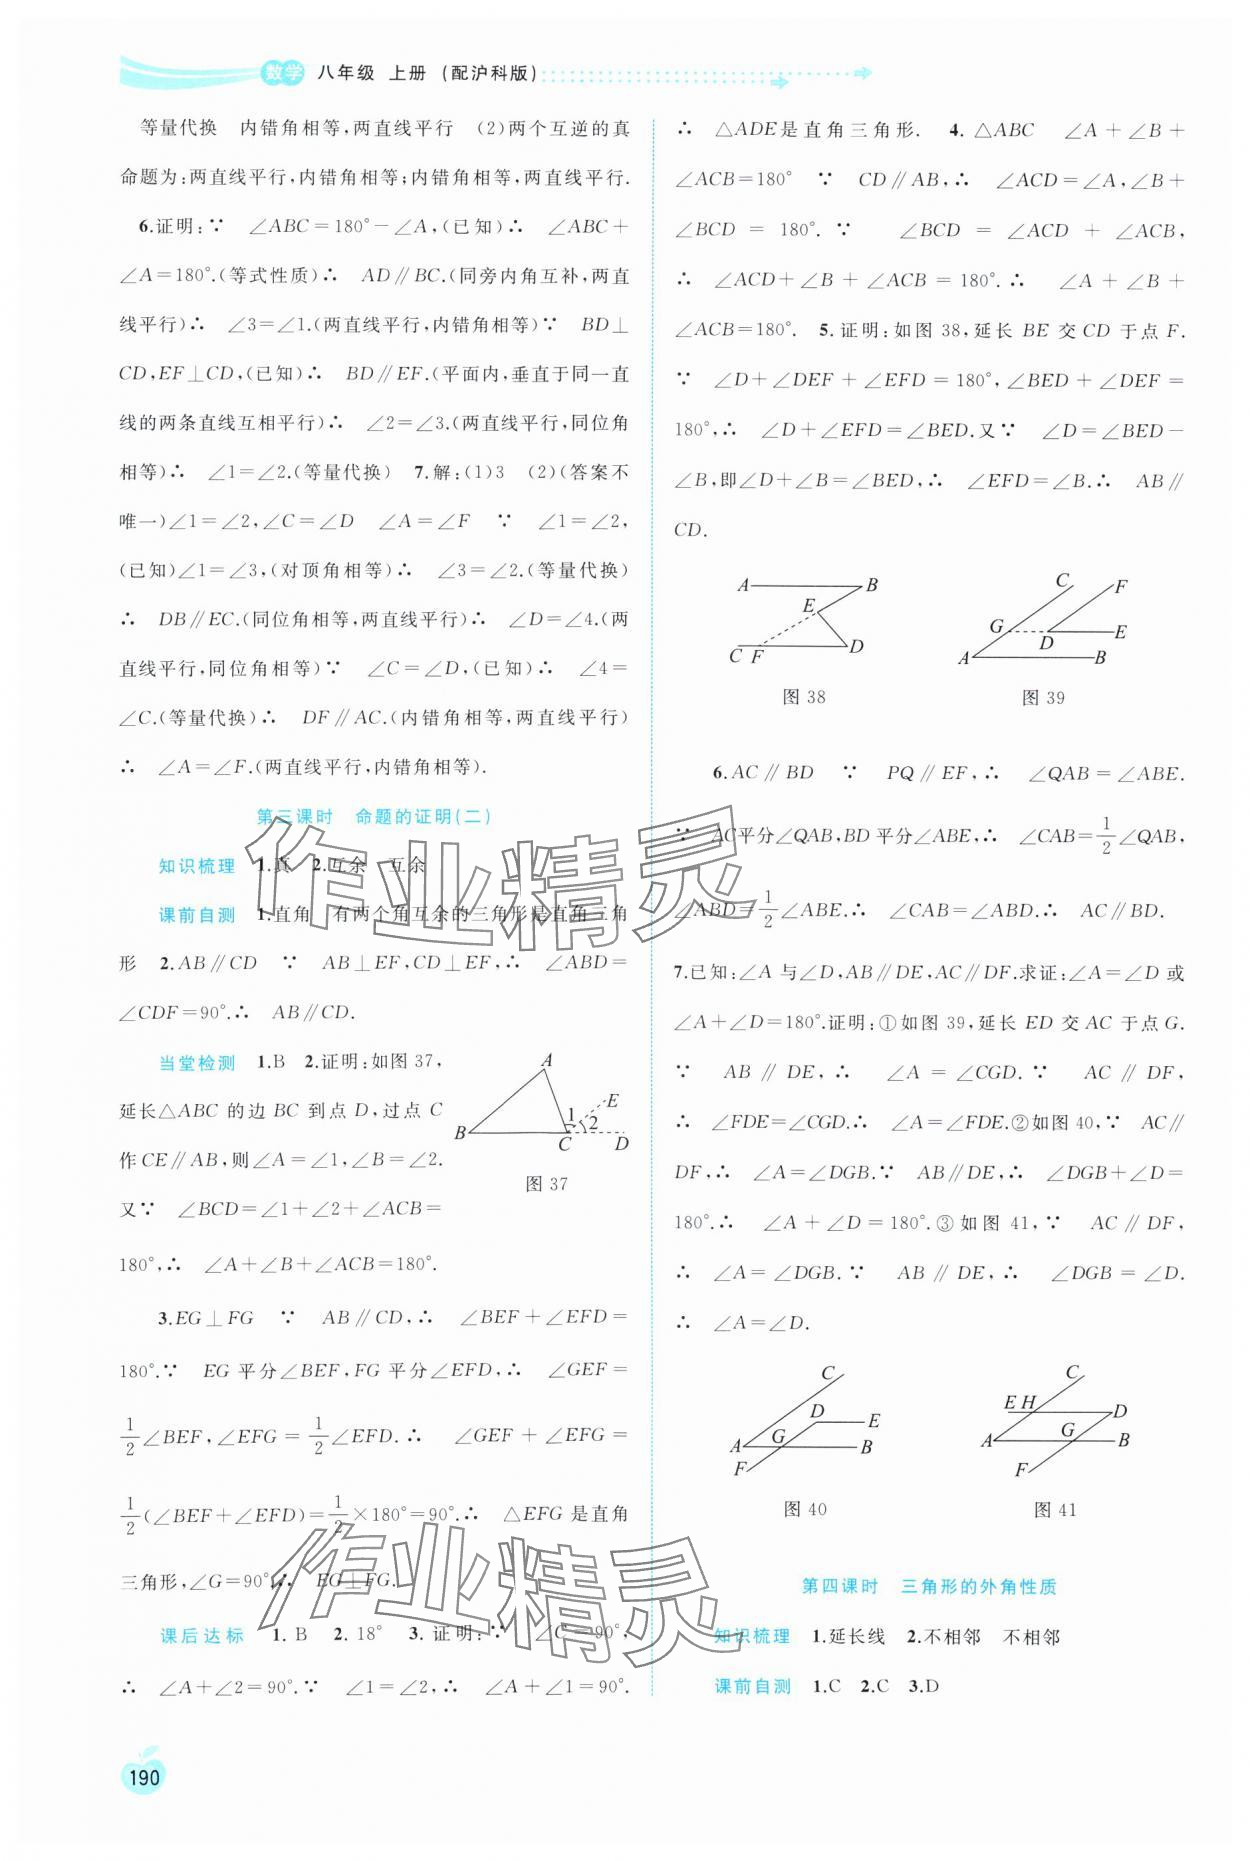 数学 八年级 上册 (配沪科版)
等量代换 内错角相等,两直线平行 (2)两个互逆的真
命题为:两直线平行,内错角相等;内错角相等,两直线平行.
6.证明:∵ ∠ABC=180°-∠A,(已知)∴ ∠ABC+
∠A=180°.(等式性质)∴ AD∥BC.(同旁内角互补,两直
线平行)∴ ∠3=∠1.(两直线平行,内错角相等)∵ BD⊥
CD,EF⊥CD,(已知)∴ BD∥EF.(平面内,垂直于同一直
线的两条直线互相平行)∴ ∠2=∠3.(两直线平行,同位角
相等)∴ ∠1=∠2.(等量代换) 7.解:(1)3 (2)(答案不
唯一)∠1=∠2,∠C=∠D ∠A=∠F ∵ ∠1=∠2,
(已知)∠1=∠3,(对顶角相等)∴ ∠3=∠2.(等量代换)
∴ DB∥EC.(同位角相等,两直线平行)∴ ∠D=∠4.(两
直线平行,同位角相等)∵ ∠C=∠D,(已知)∴ ∠4=
∠C.(等量代换)∴ DF∥AC.(内错角相等,两直线平行)
∴ ∠A=∠F.(两直线平行,内错角相等).
第三课时 命题的证明(二)
知识梳理 1.真 2.互余 互余
课前自测 1.直角 有两个角互余的三角形是直角三角
形 2.AB∥CD ∵ AB⊥EF,CD⊥EF,∴ ∠ABD=
∠CDF=90°.∴ AB∥CD.
当堂检测 1.B 2.证明:如图 37,
延长△ABC 的边 BC 到点 D,过点 C
作CE∥AB,则∠A=∠1,∠B=∠2.
又∵ ∠BCD=∠1+∠2+∠ACB=
180°,∴ ∠A+∠B+∠ACB=180°.
A
B
C
D
E
1
2
图 37
3.EG⊥FG ∵ AB∥CD,∴ ∠BEF+∠EFD=
180°.∵ EG 平分∠BEF,FG 平分∠EFD,∴ ∠GEF=
1/2∠BEF,∠EFG=1/2∠EFD.∴ ∠GEF+∠EFG=
1/2(∠BEF+∠EFD)=1/2×180°=90°.∴ △EFG 是直角
三角形,∠G=90°∴ EG⊥FG.
课后达标 1.B 2.18° 3.证明:∵ ∠C=90°,
∴ ∠A+∠2=90°.∵ ∠1=∠2,∴ ∠A+∠1=90°.
∴ △ADE是直角三角形. 4.△ABC ∠A+∠B+
∠ACB=180° ∵ CD∥AB,∴ ∠ACD=∠A,∠B+
∠BCD=180°.∵ ∠BCD=∠ACD+∠ACB,
∴ ∠ACD+∠B+∠ACB=180°.∴ ∠A+∠B+
∠ACB=180°. 5.证明:如图 38,延长 BE 交 CD 于点 F.
∵ ∠D+∠DEF+∠EFD=180°,∠BED+∠DEF=
180°,∴ ∠D+∠EFD=∠BED.又∵ ∠D=∠BED-
∠B,即∠D+∠B=∠BED,∴ ∠EFD=∠B.∴ AB∥
CD.
A B E C F D
图 38
C F G D E A B
图 39
6.AC∥BD ∵ PQ∥EF,∴ ∠QAB=∠ABE.
∵ AC平分∠QAB,BD平分∠ABE,∴ ∠CAB=1/2∠QAB,
∠ABD=1/2∠ABE.∴ ∠CAB=∠ABD.∴ AC∥BD.
7.已知:∠A 与∠D,AB∥DE,AC∥DF.求证:∠A=∠D 或
∠A+∠D=180°.证明:①如图 39,延长 ED 交 AC 于点 G.
∵ AB∥DE,∴ ∠A=∠CGD.∵ AC∥DF,
∴ ∠FDE=∠CGD.∴ ∠A=∠FDE.②如图 40,∵ AC∥
DF,∴ ∠A=∠DGB.∵ AB∥DE,∴ ∠DGB+∠D=
180°.∴ ∠A+∠D=180°.③如图 41,∵ AC∥DF,
∴ ∠A=∠DGB.∵ AB∥DE,∴ ∠DGB=∠D.
∴ ∠A=∠D.
C D E A G B F
图 40
C E H D A G B F
图 41
第四课时 三角形的外角性质
知识梳理 1.延长线 2.不相邻 不相邻
课前自测 1.C 2.C 3.D
190
作业精灵
作业精灵